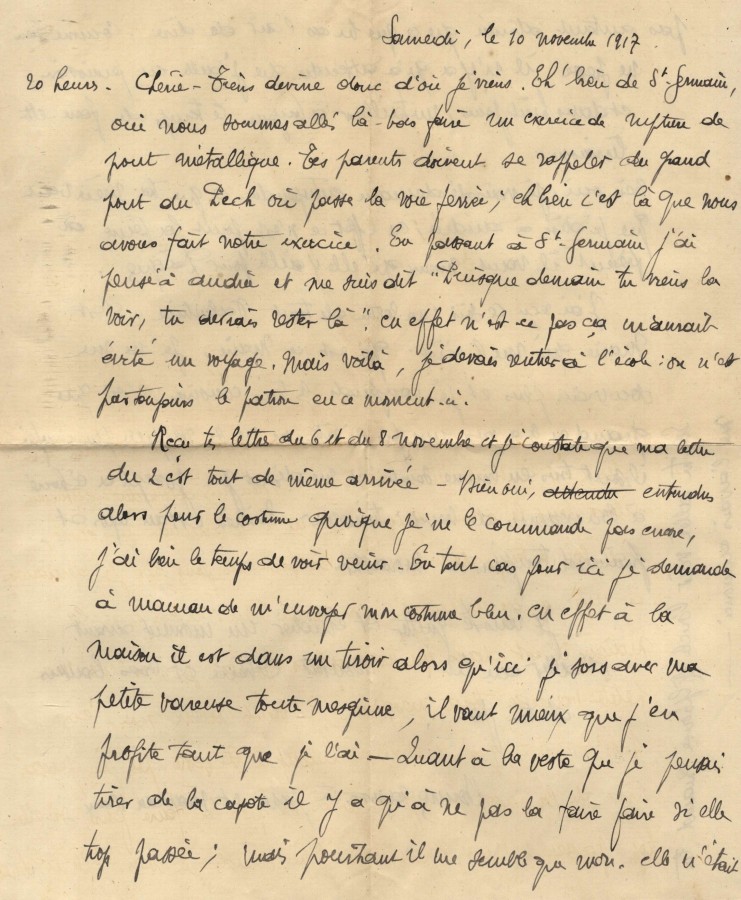 Samedi, le 10 novembre 1917.
20 heures. Chérie - Tiens devine donc d'où je viens. Eh! bien de St Germain,
où nous sommes allés là-bas faire un exercice de rupture de
pont métallique. Tes parents doivent se rappeler du grand
pont du Pech où passe la voie ferrée; eh bien c'est là que nous
avons fait notre exercice. En passant à St Germain j'ai
pensé à andrée et me suis dit "Puisque demain tu viens la
voir, tu devrais rester là". en effet n'est-ce pas ça m'aurait
évité un voyage. Mais voilà, je devais rentrer à l'école: on n'est
pas toujours le patron en ce moment-ci.
Reçu ts lettre du 6 et du 8 novembre et je constate que ma lettre
du 2 est tout de même arrivée - Bien oui, attendu entendus
alors pour le costume quoique je ne le commande pas encore,
j'ai bien le temps de voir venir. En tout cas pour ici je demande
à maman de m'envoyer mon costume bleu. en effet à la
maison il est dans un tiroir alors qu'ici je sors avec ma
petite vareuse toute mesquine, il vaut mieux que j'en
profite tant que je l'ai — Quant à la veste que je pensais
tirer de la capote il y a qu'à ne pas la faire faire si elle
trop passée; mais pourtant il me semble que non. elle n'était